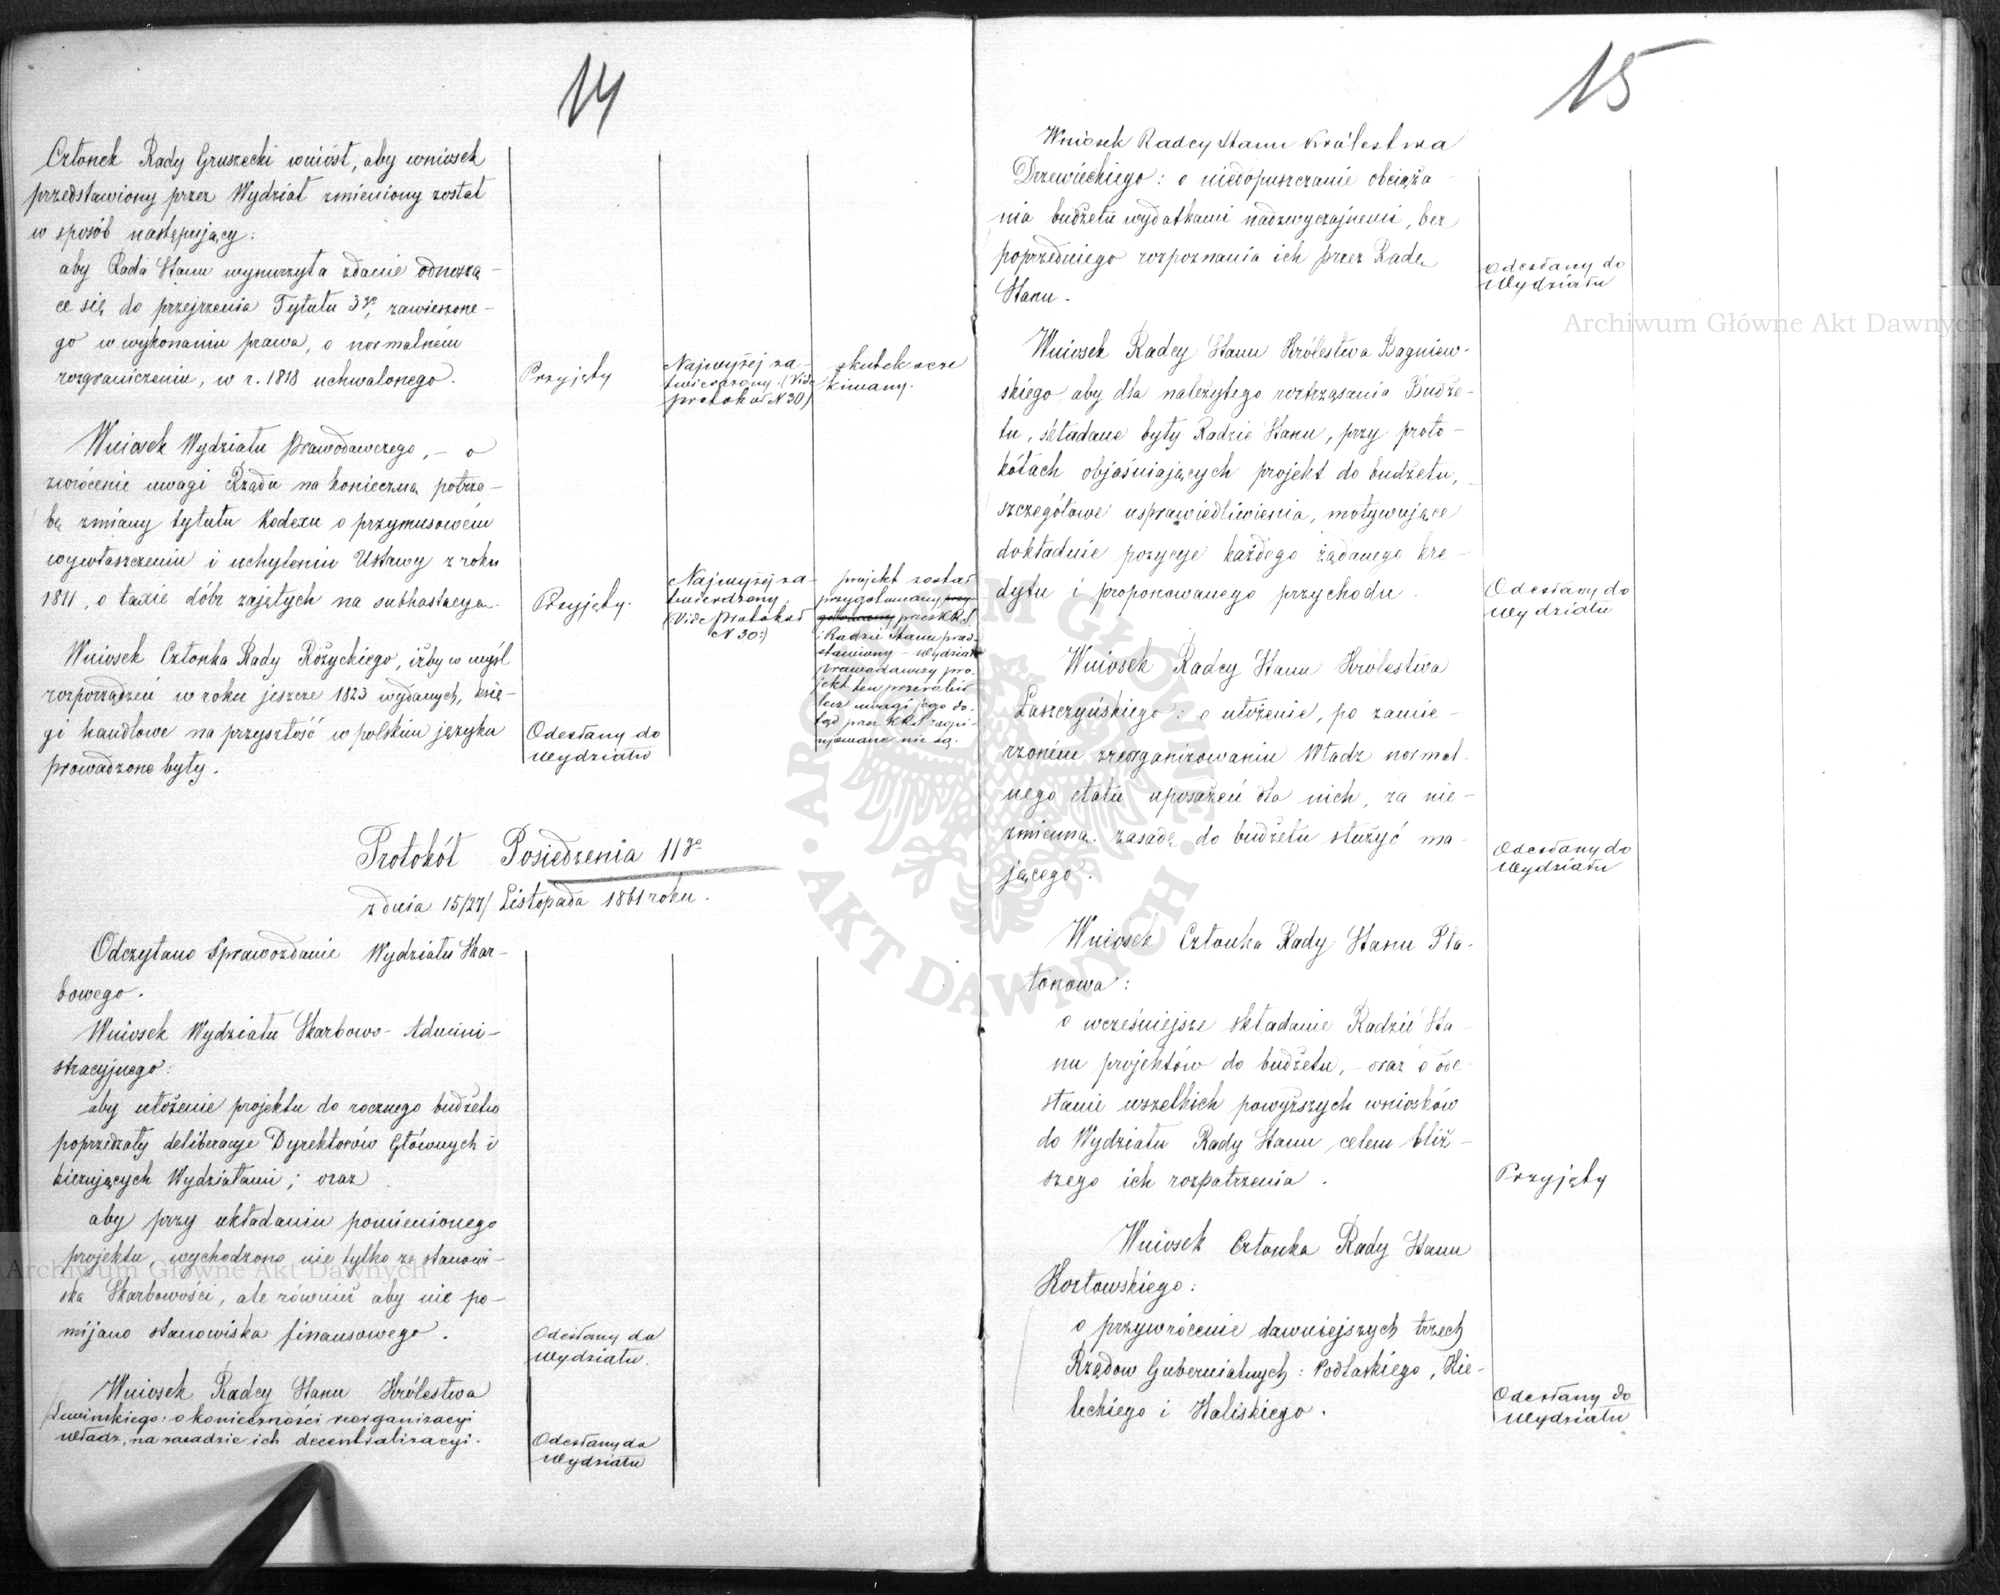 14
Członek Rady Gruszecki wniósł, aby wniosek
przedstawiony przez Wydział zmieniony został
w sposób następujący:
aby Rada Stanu wynurzyła zdanie odnoszą-
ce się do przejrzenia Tytułu 3go, zawieszone-
go w wykonaniu prawa, o normalném
rozgraniczeniu, w r. 1818 uchwalonego.
Przyjęty
Najwyżej za-
twierdzony. (Vide
protokół N 30)
skutek ocze
kiwany.
Wniosek Wydziału Prawodawczego, - o
zwrócenie uwagi Rządu na konieczną potrze-
bę zmiany tytułu Kodexu o przymusowém
wywłaszczeniu i uchyleniu Ustawy z roku
1811, o taxie dóbr zajętych na subhastacyą.
Przyjęty.
Najwyżej za-
twierdzony,
(Vide Protokół
N 30:)
projekt został
przygotowany przy-
gotowany przez K.R.S.
i Radzie Stanu przed-
stawiony - Wydział
Prawodawczy pro-
jekt ten przerobił
lecz uwagi jego do-
tąd przez K.R.S. zaopi-
njowane nie są.
Wniosek Członka Rady Różyckiego, iżby w myśl
rozporządzeń w roku jeszcze 1823 wydanych, księ-
gi handlowe na przyszłość w polskim języku
prowadzone były.
Odesłany do
Wydziału
Protokół Posiedzenia 11go
z dnia 15/27/ Listopada 1861 roku.
Odczytano Sprawozdanie Wydziału Skar-
bowego.
Wniosek Wydziału Skarbowo-Admini-
stracyjnego:
aby ułożenie projektu do rocznego budżetu
poprzedzały deliberacye Dyrektorów Głównych i
kierujących Wydziałami; oraz
aby przy układaniu pomienionego
projektu, wychodzono nie tylko ze stanowi-
ska Skarbowości, ale również aby nie po-
mijano stanowiska finansowego.
Odesłany do
Wydziału.
Wniosek Radcy Stanu Królestwa
Lewińskiego: o konieczności reorganizacyi
władz, na zasadzie ich decentralizacyi.
Odesłany do
Wydziału
15
Wniosek Radcy Stanu Królestwa
Drzewieckiego: o niedopuszczanie obciąża-
nia budżetu wydatkami nadzwyczajnemi, bez
poprzedniego rozpoznania ich przez Radę
Stanu.
Odesłany do
Wydziału
Wniosek Radcy Stanu Królestwa Bagniew-
skiego aby dla należytego roztrząsania Budże-
tu, składane były Radzie Stanu, przy proto-
kółach objaśniających projekt do budżetu,
szczegółowe usprawiedliwienia, motywujące
dokładnie pozycye każdego żądanego kre-
dytu i proponowanego przychodu.
Odesłany do
Wydziału
Wniosek Radcy Stanu Królestwa
Łaszczyńskiego: o ułożenie, po zamie-
rzoném zreorganizowaniu Władz normal-
nego etatu uposażeń dla nich, za nie-
zmienną zasadę do budżetu służyć ma-
jącego.
Odesłany do
Wydziału
Wniosek Członka Rady Stanu Pła-
tonowa:
o wcześniejsze składanie Radzie Sta-
nu projektów do budżetu, - oraz o ode-
słanie wszelkich powyższych wniosków
do Wydziału Rady Stanu, celem bliż-
szego ich rozpatrzenia.
Przyjęty
Wniosek Członka Rady Stanu
Kozłowskiego:
o przywrócenie dawniejszych trzech
Rządów Gubernialnych: Podlaskiego, Kie-
leckiego i Kaliskiego.
Odesłany do
Wydziału
Archiwum Główne Akt Dawnych
Archiwum Główne Akt Dawnych
ARCHIWUM GŁÓWNE AKT DAWNYCH